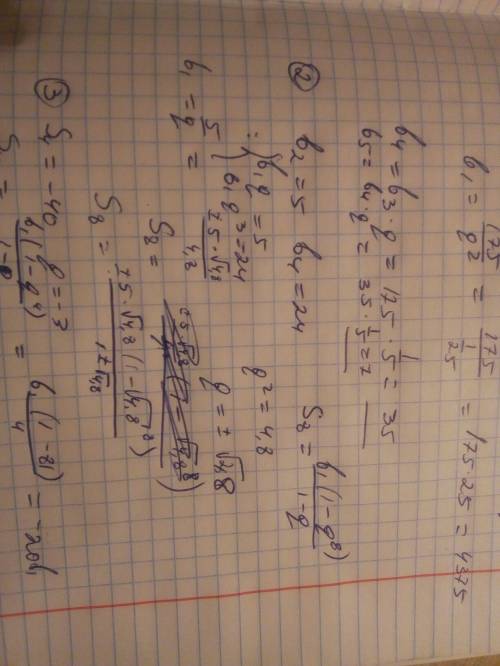 b₁ = 175/q² = 175/(1/25) = 175·25 = 4375
b₄ = b₃·q = 175·1/5 = 35
b₅ = b₄·q = 35·1/5 = 7
② b₂ = 5 b₄ = 24 S₈ = b₁(1-q⁸)/(1-q)
: { b₁q = 5
b₁q³ = 24
q² = 4,8
q = ±√4,8
b₁ = 5/q =
S₈ =
S₈ =
③ S₄ = -40 q = -3
S₄ = b₁(1-q⁴)/(1-q) = b₁(1-81)/4 = -20b₁